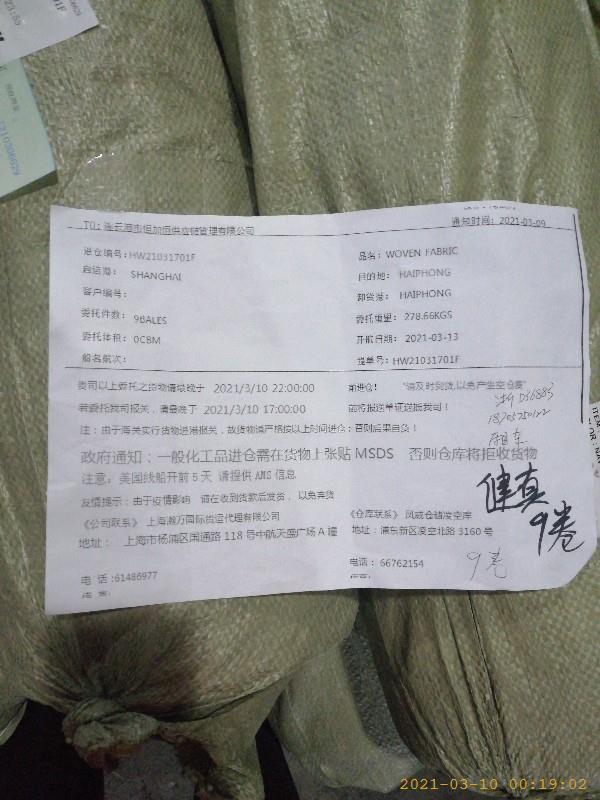 TO: 连云港市恒加恒供应链管理有限公司
通知时间: 2021-03-09
进仓编号: HW21031701F
品名: WOVEN FABRIC
启运港: SHANGHAI
目的地: HAIPHONG
客户编号:
卸货港: HAIPHONG
委托件数: 9BALES
委托重量: 278.66KGS
委托体积: 0CBM
开航日期: 2021-03-13
船名航次:
提单号: HW21031701F
贵司以上委托之货物请最晚于 2021/3/10 22:00:00 前进仓! "请及时到货,以免产生空仓费"
若委托我司报关, 请最终于 2021/3/10 17:00:00 前将报送单证送抵我司!
注: 由于海关实行货物进港报关, 故货物请严格按以上时间进仓; 否则后果自负!
政府通知: 一般化工品进仓需在货物上张贴 MSDS 否则仓库将拒收货物
注意, 美国线船开前 5 天 请提供 AMS 信息
友情提示: 由于疫情影响 请在收到货款后发货, 以免弃货
《公司联系》 上海瀚万国际货运代理有限公司
《仓库联系》 凤威仓储凌空库
地址: 上海市杨浦区国通路 118 号中航天盛广场 A 幢
地址: 浦东新区凌空北路 3160 号
电 话 :61486977
电话: 66762154
9卷
9卷
2021-03-10 00:19:02